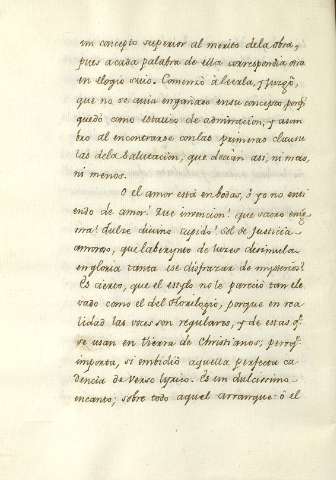 un concepto superior al merito dela obra,
pues acada palabra de ella correspondia otra
en elogio suio. Comenzó à leerla, y juzgó,
que no se avia engañado ensu concepto, porq.
quedó como estatico de admiracion, y asom-
bro al encontrarse conlas primeras clausu-
las dela Salutacion, que decian asi, ni mas,
ni menos.
O el amor está en bodas, ò yo no enti
endo de amor! Que invencion! que sacro enig
ma! dulce divino cupido! Sol de Justicia
amoroso, que laberynto de luzes desimula
en gloria tanta ese disfrazar de mysterios!
Es cierto, que el estylo no le parció tan ele
vado como el del Florilogio, porque en rea
lidad las voces son regulares, y de estas q.
se usan en tierra de Christianos; pero q.
importa, si embidió aquella perfecta ca
dencia de verso lyrico. Es un dulcissimo
encanto; sobre todo aquel arranque: ò el